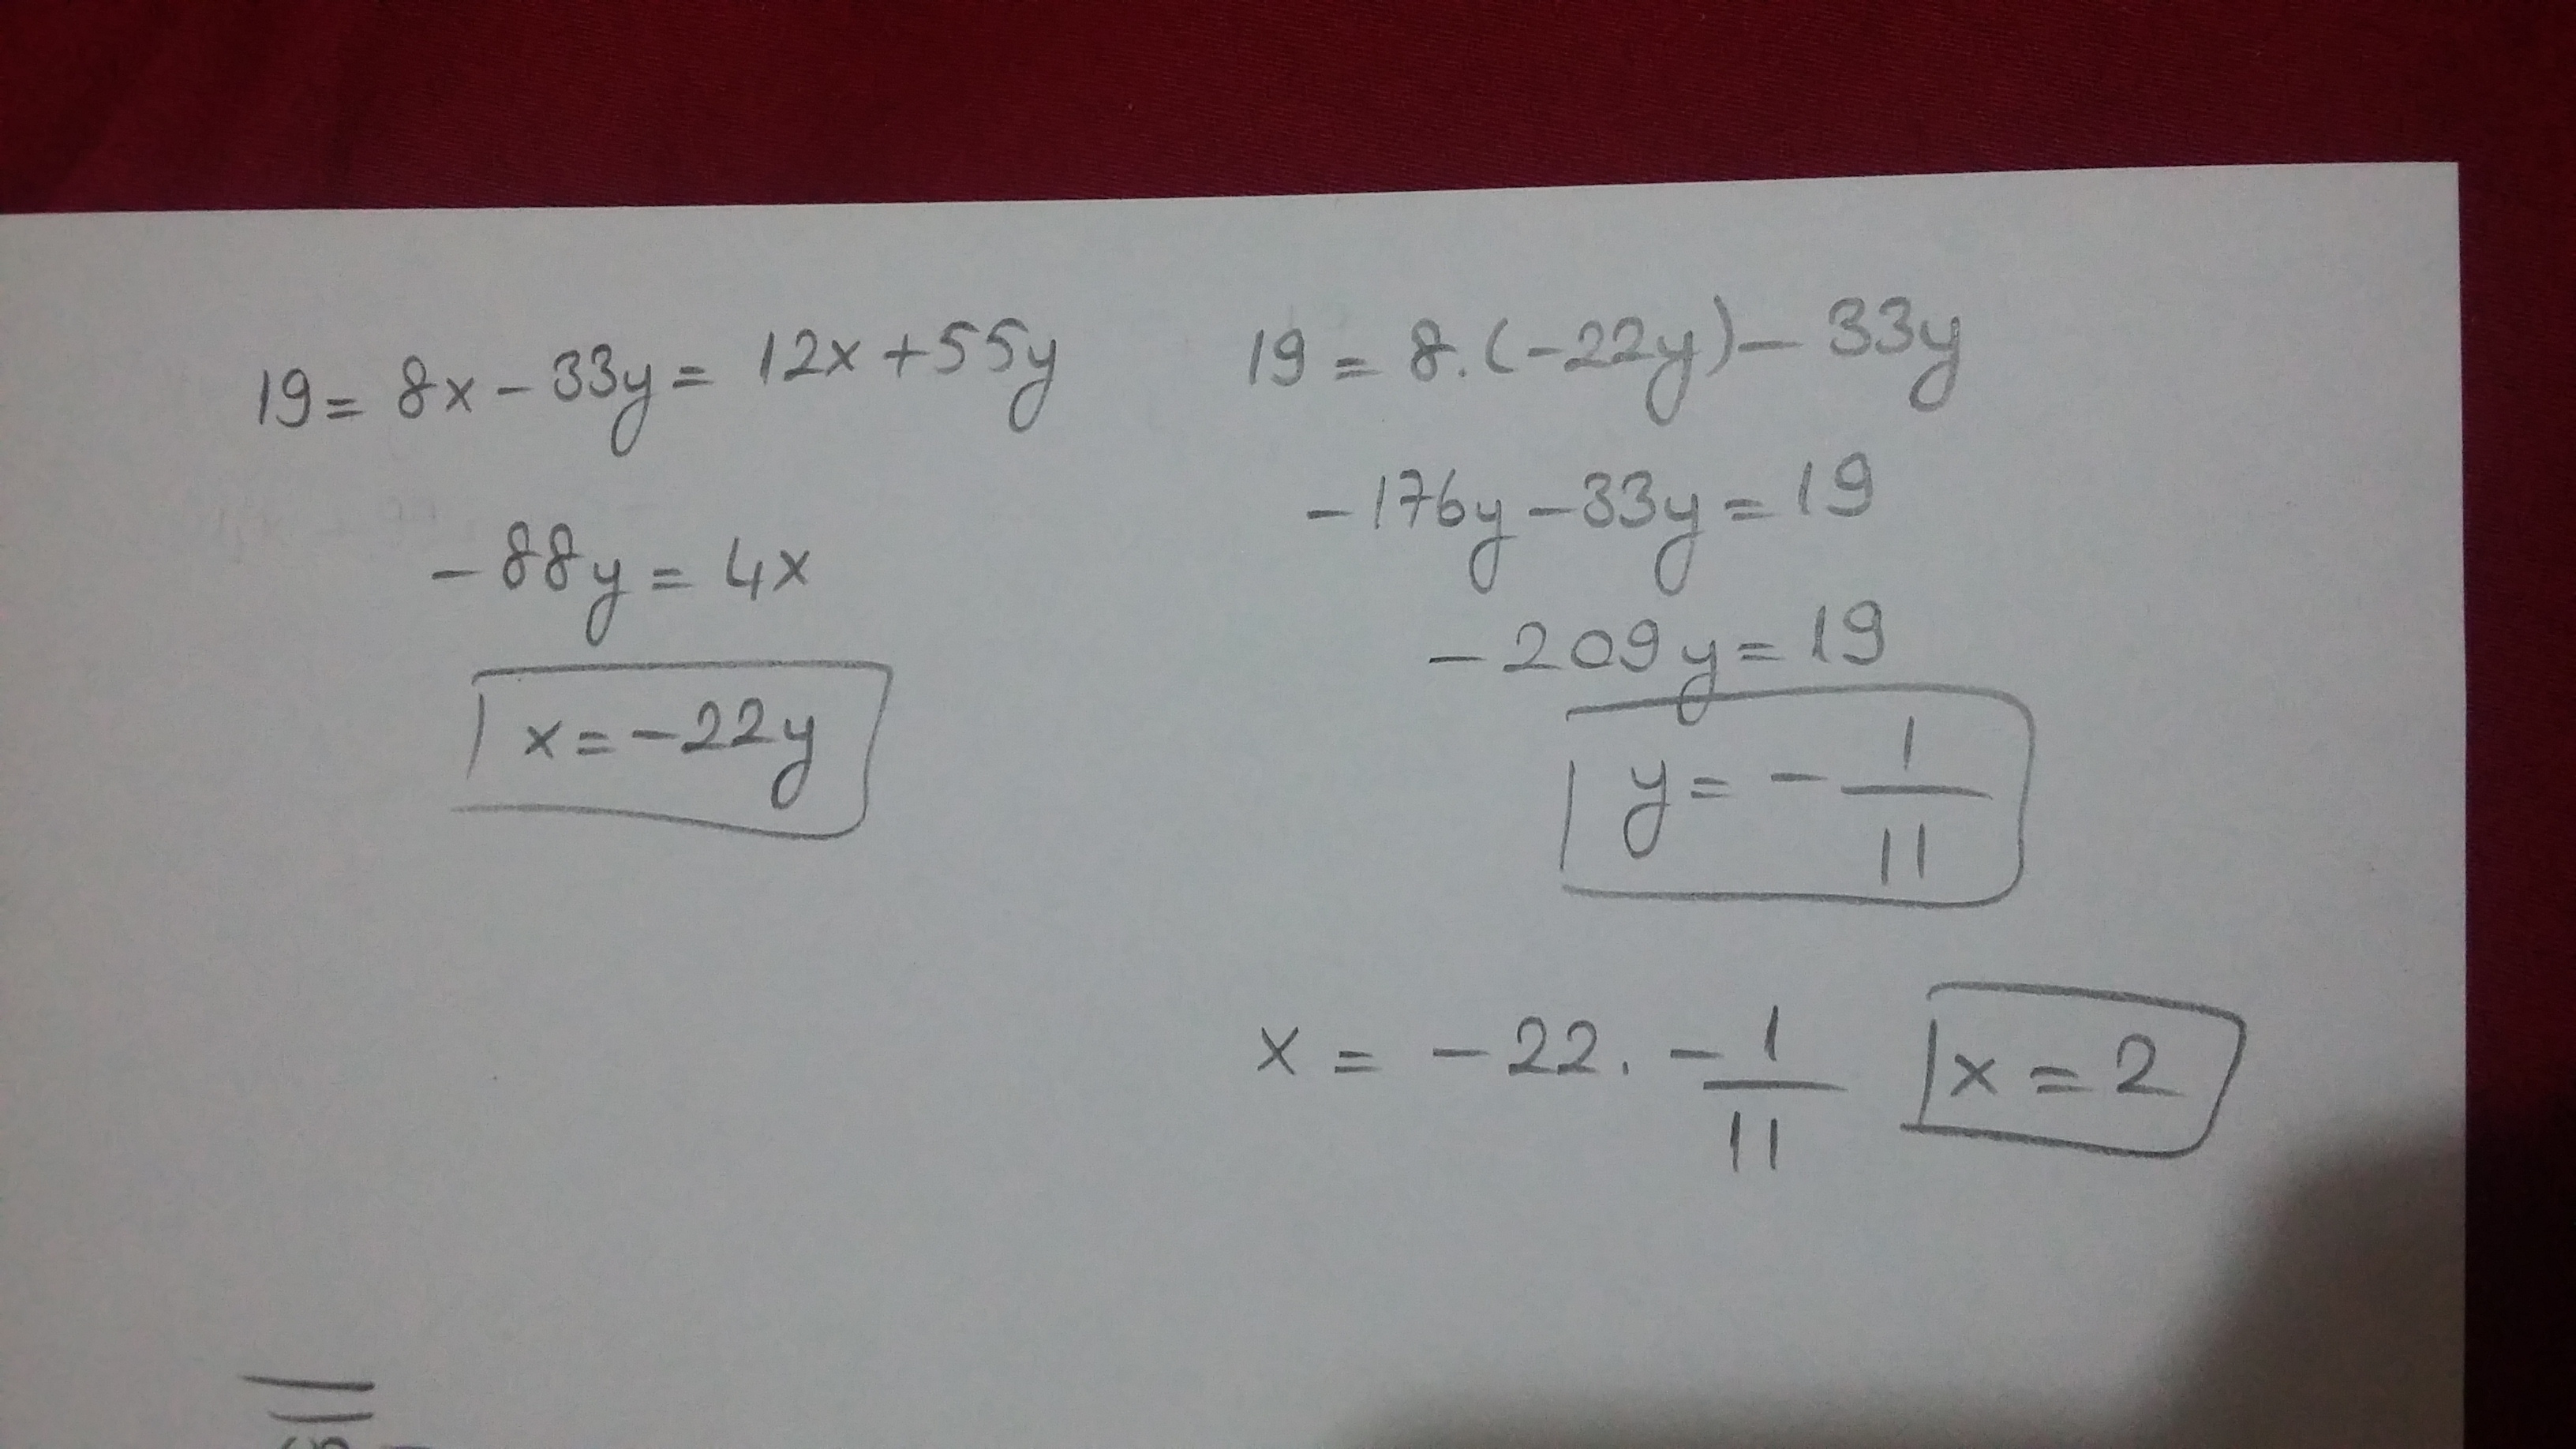 19 = 8x - 33y = 12x + 55y
- 88y = 4x
x = -22y
19 = 8.(-22y) - 33y
-176y - 33y = 19
- 209y = 19
y = - 1/11
x = - 22. - 1/11
x = 2